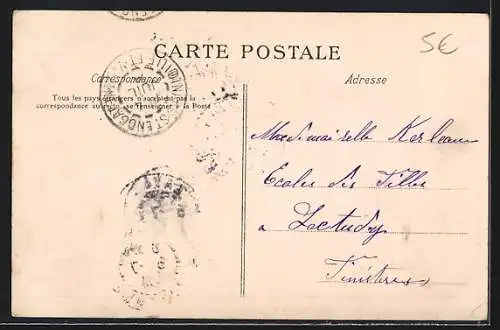 5€
CARTE POSTALE
Correspondance
Adresse
Tous les pays étrangers n'acceptent pas la
correspondance au recto (se renseigner à la Poste
Mademoiselle
Ecoles des Filles
a Loctudy
Finistère